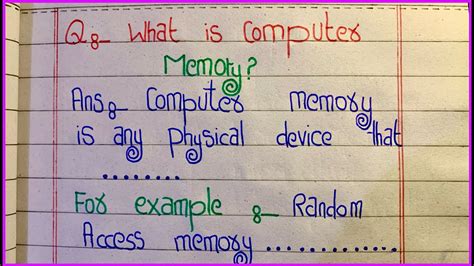 Q:- What is Computer
Memory?
Ans:- Computer memory
is any physical device that
........
For example :- Random
Access memory ............